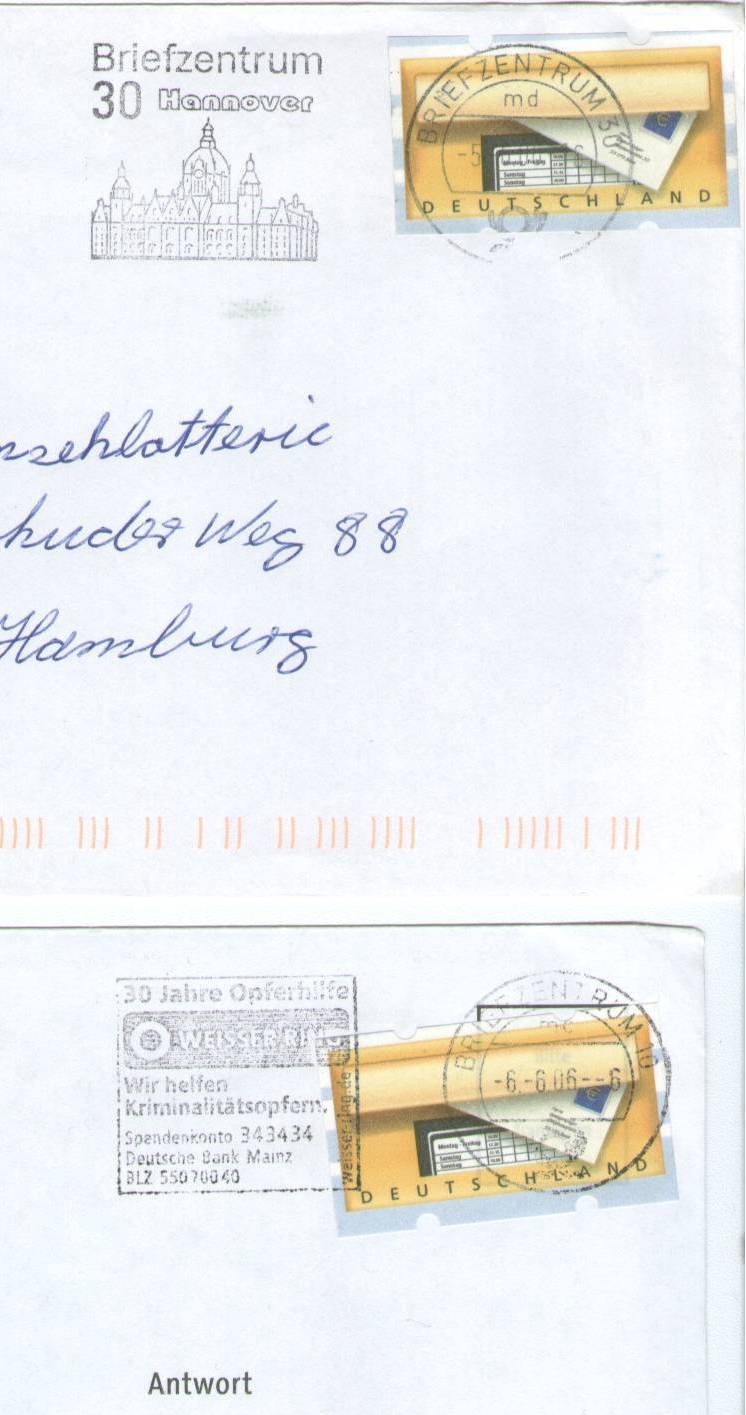 Briefzentrum
30 Hannover
BRIEFZENTRUM 30
md
-5
Montag - Freitag
Samstag
Sonntag
DEUTSCHLAND
nsehlotterie
huder Weg 88
Hamburg
30 Jahre Opferhilfe
WEISSER RING
Wir helfen
Kriminalitätsopfern.
Spendenkonto 343434
Deutsche Bank Mainz
BLZ 55070040
weisser-ring.de
BRIEFZENTRUM 10
mc
-6.-6.06--6
Montag - Freitag
Samstag
Sonntag
DEUTSCHLAND
Antwort